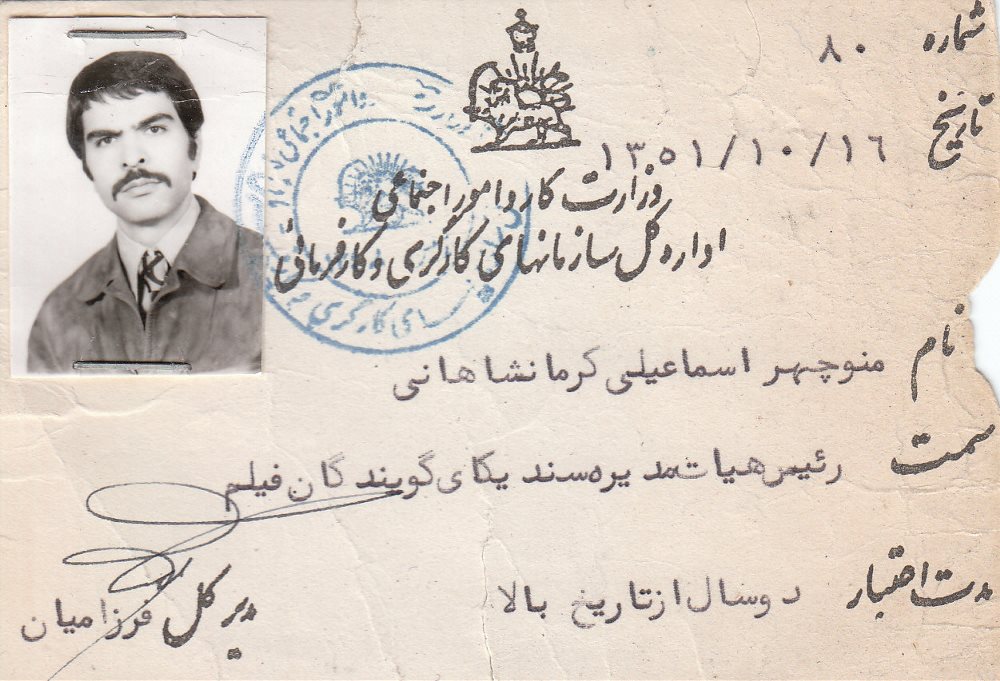 شماره ۸۰
تاریخ ۱۳۵۱/۱۰/۱۶
وزارت کار و امور اجتماعی
اداره کل سازمانهای کارگری و کارفرمائی
نام منوچهر اسماعیلی کرمانشاهانی
سمت رئیس هیات مدیره سندیکای گویندگان فیلم
مدت اعتبار دوسال از تاریخ بالا
مدیر کل فرزامیان